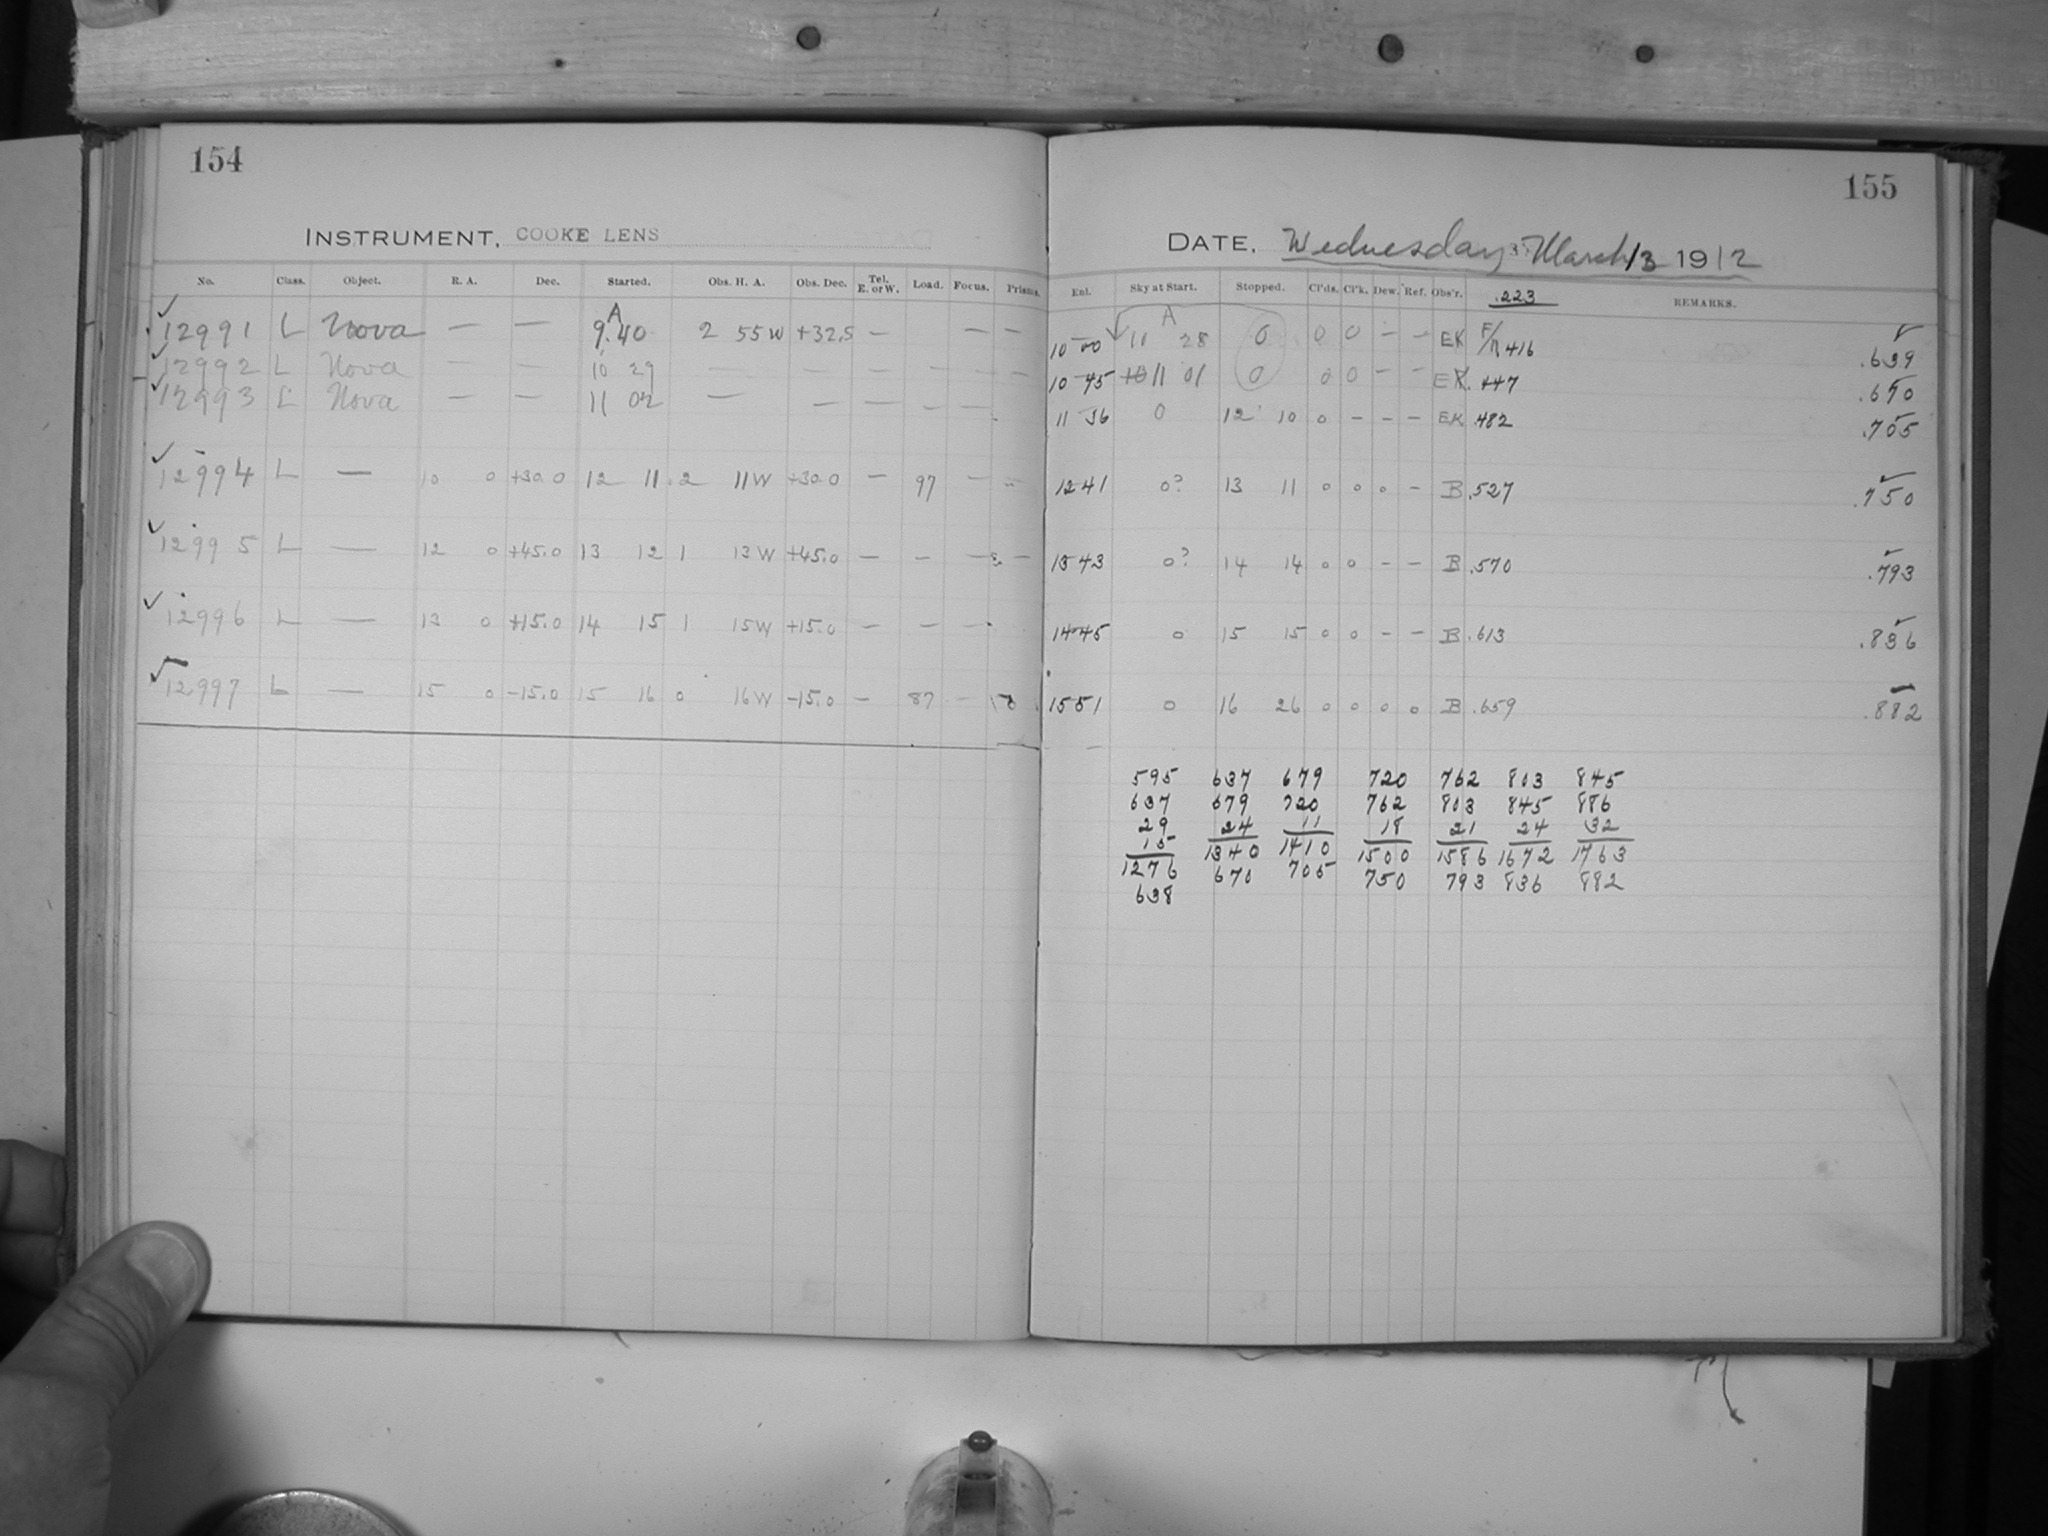 154
INSTRUMENT, COOKE LENS
No. Class. Object. R. A. Dec. Started. Obs. H. A. Obs. Dec. Tel. E. or W. Load. Focus. Prisms.
12991 L Nova — — 9.40 2 55W +32.5 — — —
12992 L Nova — — 10 29 — — — — — —
12993 L Nova — — 11 02 — — — — —
12994 L — 10 0 +30.0 12 11 2 11W +30.0 — 97 —
12995 L — 12 0 +45.0 13 12 1 13W +45.0 — — — —
12996 L — 13 0 +15.0 14 15 1 15W +15.0 — — —
12997 L — 15 0 -15.0 15 16 0 16W -15.0 — 87 —
155
DATE, Wednesday March 13 1912
Exl. Sky at Start. Stopped. Cl'ds. Cl'k. Dew. Ref. Obs'r. .223 REMARKS.
A
10 00 11 28 0 0 0 - - EK .416 .639
10 45 11 01 0 0 0 - - EK .447 .670
11 36 0 12 10 0 - - - EK .482 .705
12 41 0? 13 11 0 0 0 - B .527 .750
13 43 0? 14 14 0 0 - - B .570 .793
14 45 0 15 15 0 0 - - B .613 .836
15 51 0 16 26 0 0 0 0 B .659 .882
595 637 679 720 762 803 845
637 679 720 762 803 845 886
29 24 11 18 21 24 32
15 1340 1410 1500 1586 1672 1763
1276 670 705 750 793 836 882
638